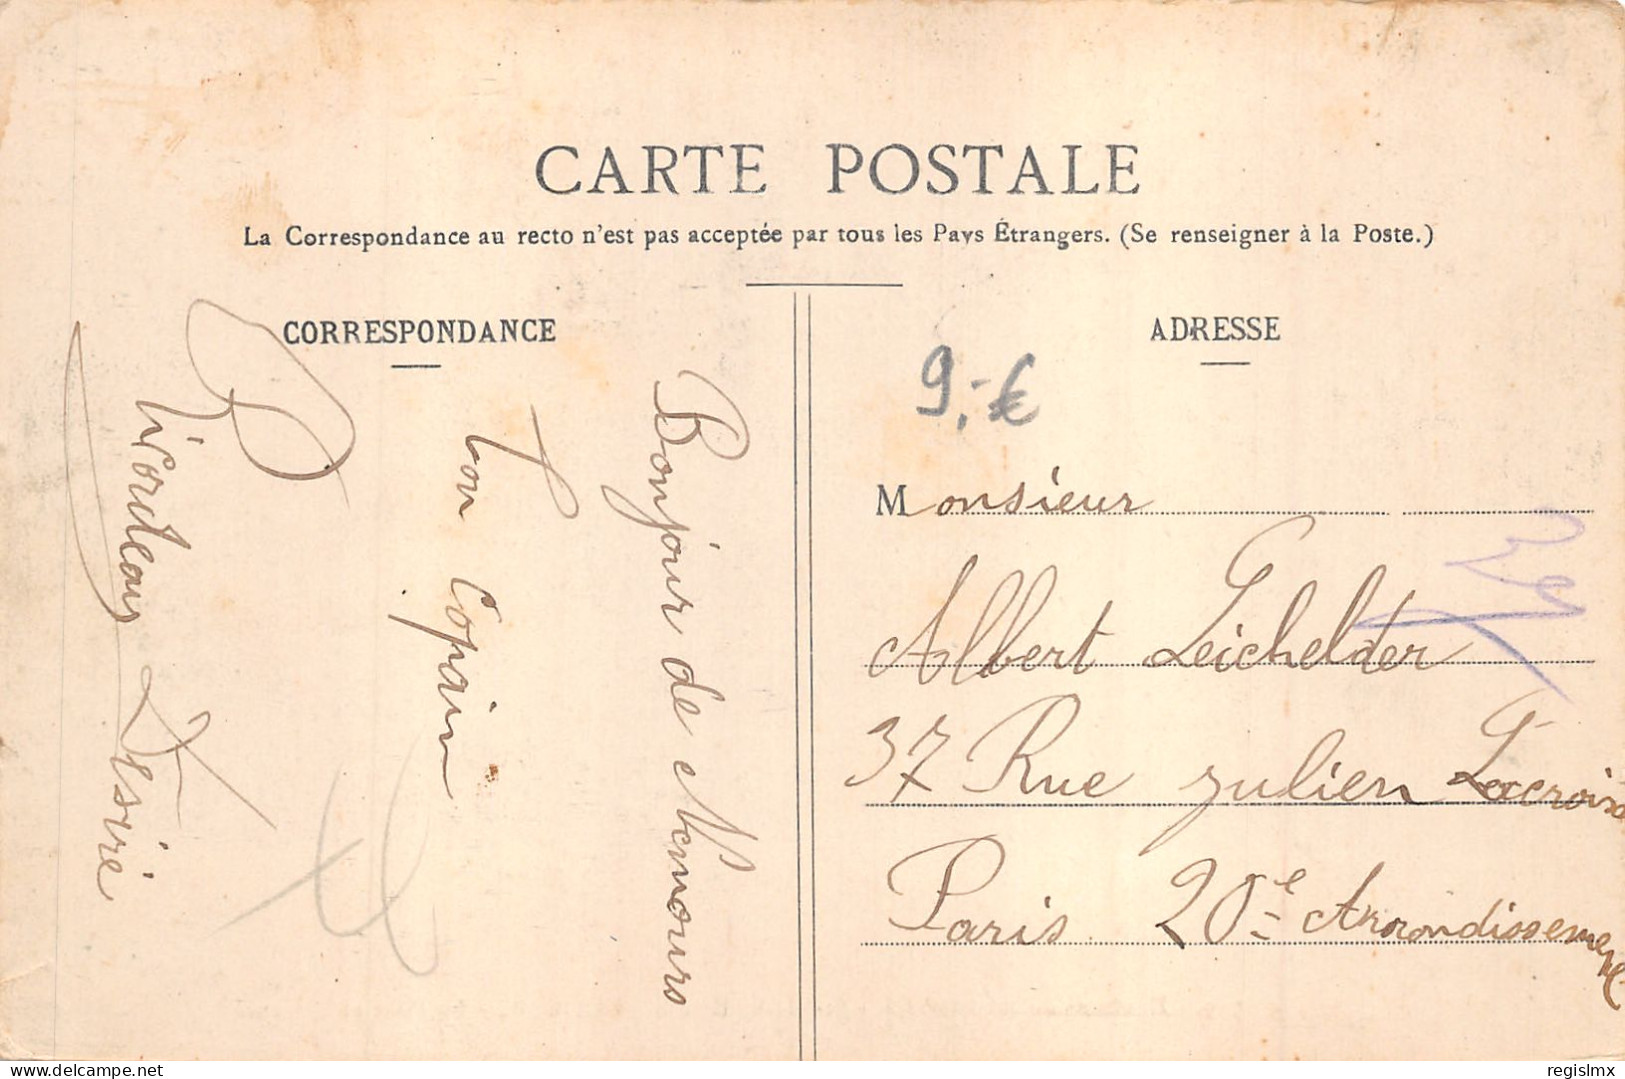 CARTE POSTALE
La Correspondance au recto n'est pas acceptée par tous les Pays Étrangers. (Se renseigner à la Poste.)
CORRESPONDANCE
Bonjour de Nemours
Ton Copain
Désiré
ADRESSE
9,-€
Monsieur
Albert Leichelder
37 Rue Julien Lacroix
Paris 20e Arrondissement
www.delcampe.net
regislmx